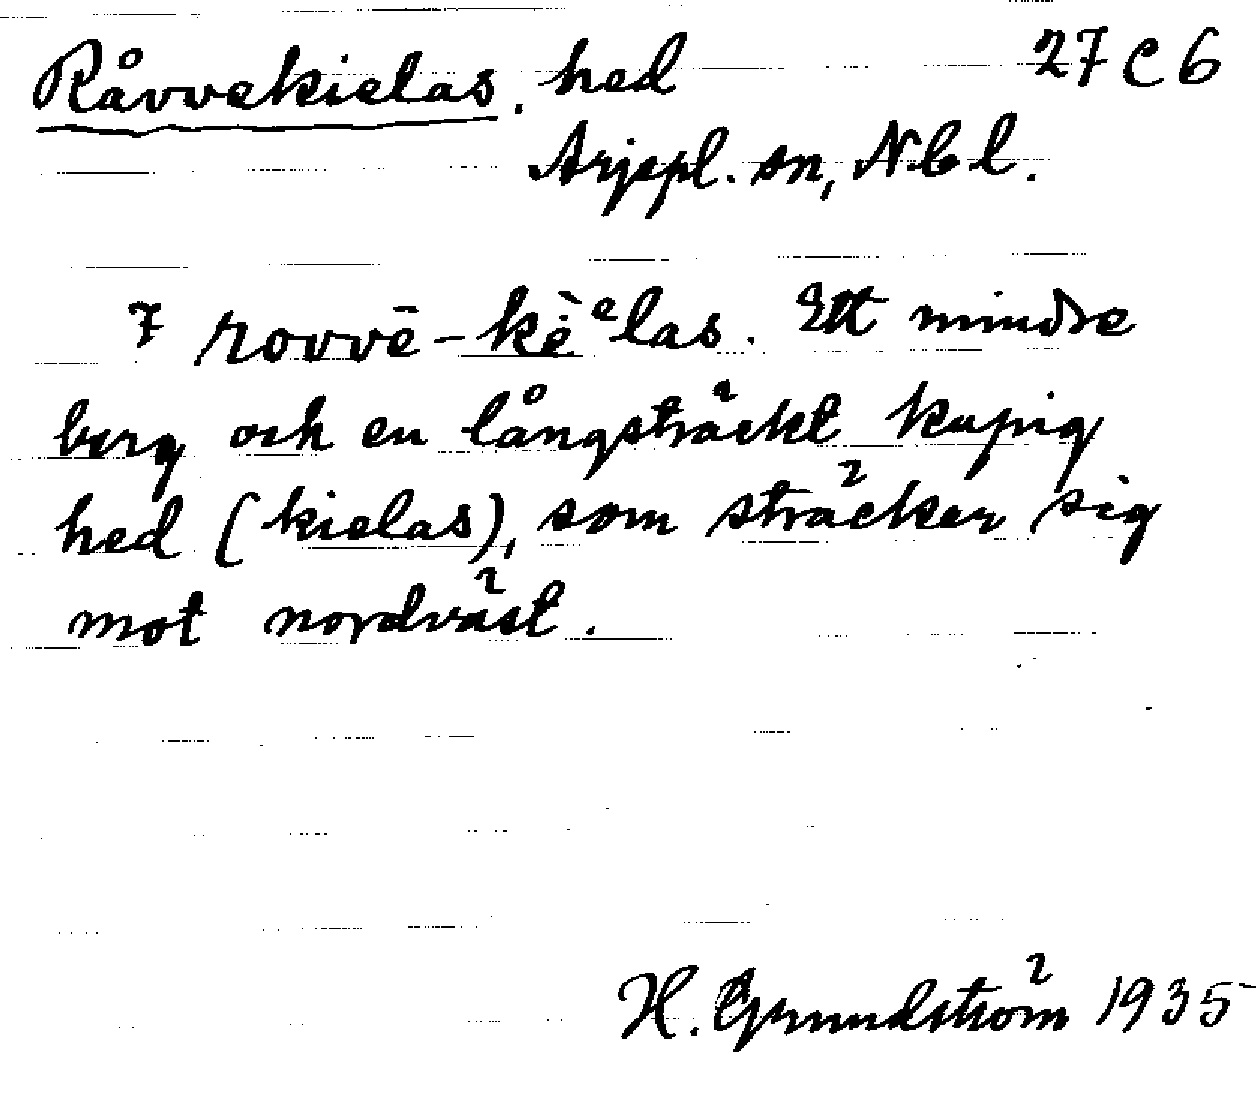 Råvvekielas. hed 27 C 6
Arjepl. sn, Nbl.
7 rovvē-kẹ̀ᵉlas. Ett mindre
berg och en långsträckt kupig
hed (kielas), som sträcker sig
mot nordväst.
H. Grundström 1935